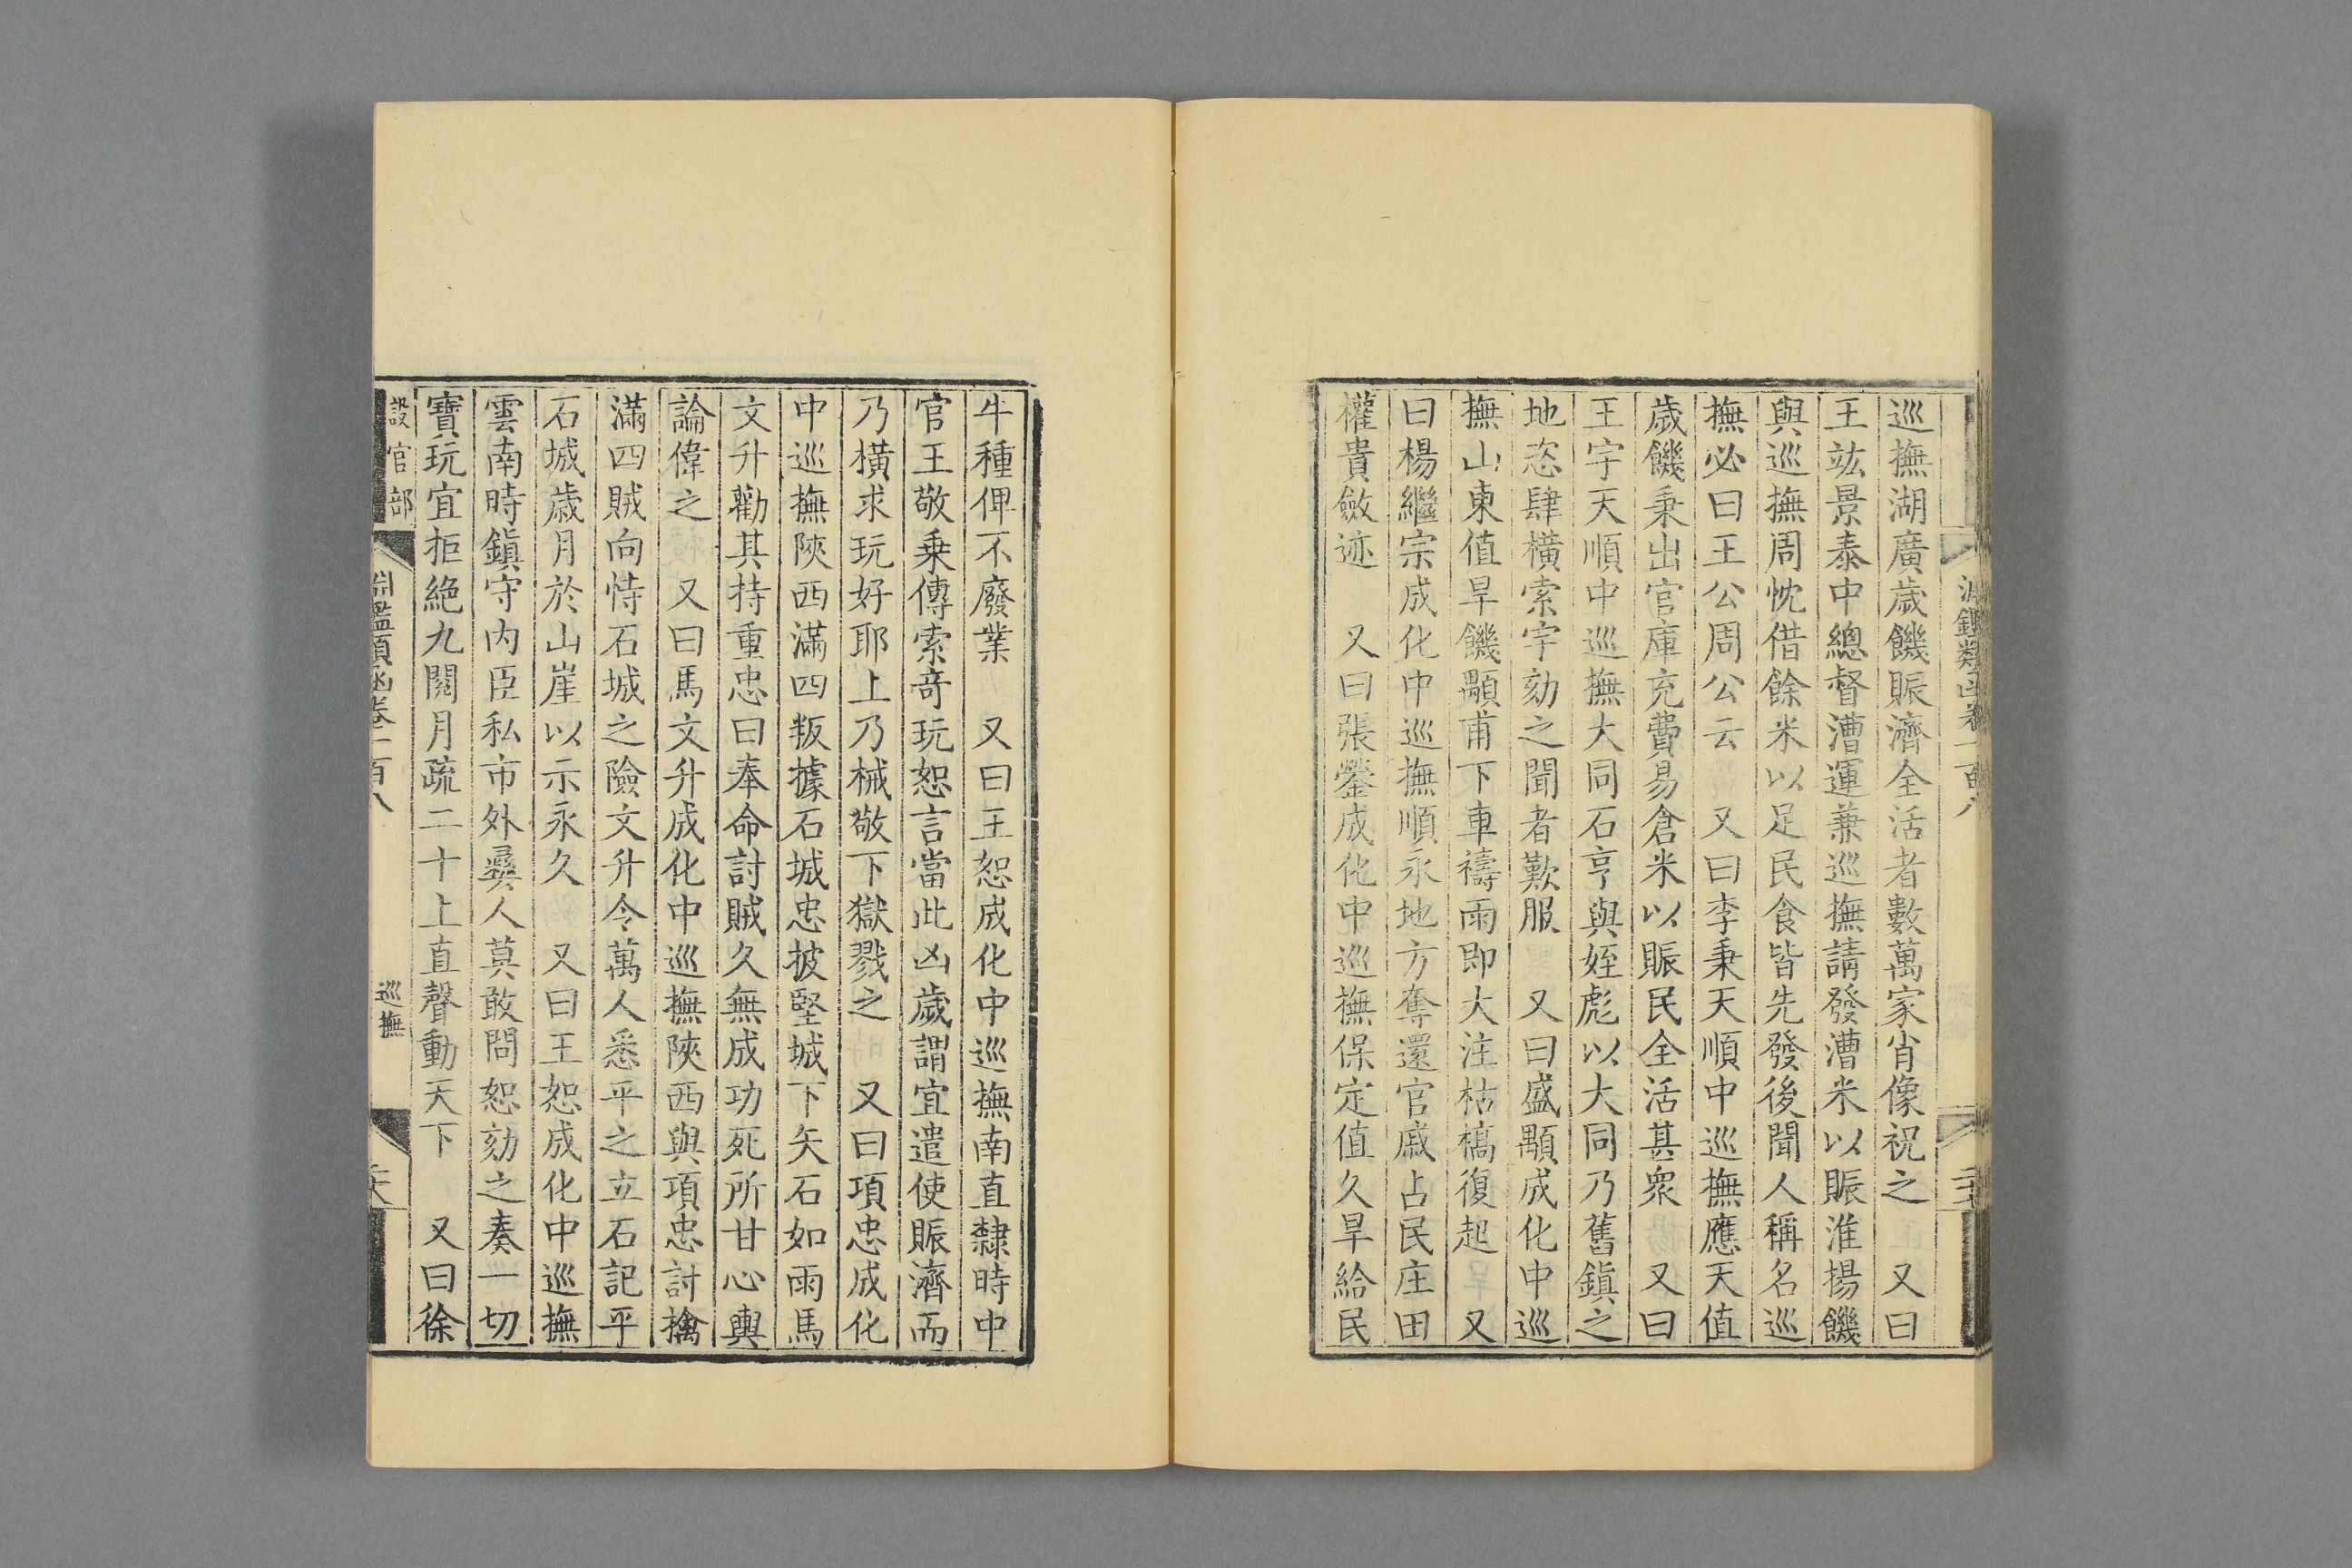 巡撫湖廣歳饑賑濟全活者數萬家肖像祝之　又曰
王竑景泰中總督漕運兼巡撫請發漕米以賑淮揚饑
與巡撫周忱借餘米以足民食皆先發後聞人稱名巡
撫必曰王公周公云　又曰李秉天順中巡撫應天值
歳饑秉出官庫充費易倉米以賑民全活甚衆　又曰
王宇天順中巡撫大同石亨與姪彪以大同乃舊鎮之
地恣肆橫索宇劾之聞者歎服　又曰盛顒成化中巡
撫山東值旱饑顒甫下車禱雨即大注枯槁復起　又
曰楊繼宗成化中巡撫順永地方奪還官戚占民庄田
權貴斂迹　又曰張鎣成化中巡撫保定值久旱給民
牛種俾不廢業　又曰王恕成化中巡撫南直隸時中
官王敬乘傳索奇玩恕言當此凶歲謂宜遣使賑濟而
乃橫求玩好耶上乃械敬下獄戮之　又曰項忠成化
中巡撫陝西滿四叛據石城忠披堅城下矢石如雨馬
文升勸其持重忠曰奉命討賊久無成功死所甘心輿
論偉之　又曰馬文升成化中巡撫陝西與項忠討擒
滿四賊向恃石城之險文升令萬人悉平之立石記平
石城歳月於山崖以示永久　又曰王恕成化中巡撫
雲南時鎮守内臣私市外彛人莫敢問恕劾之奏一切
寶玩宜拒絶九閱月疏二十上直聲動天下　又曰徐
設官部　淵鑑類函卷一百八　巡撫